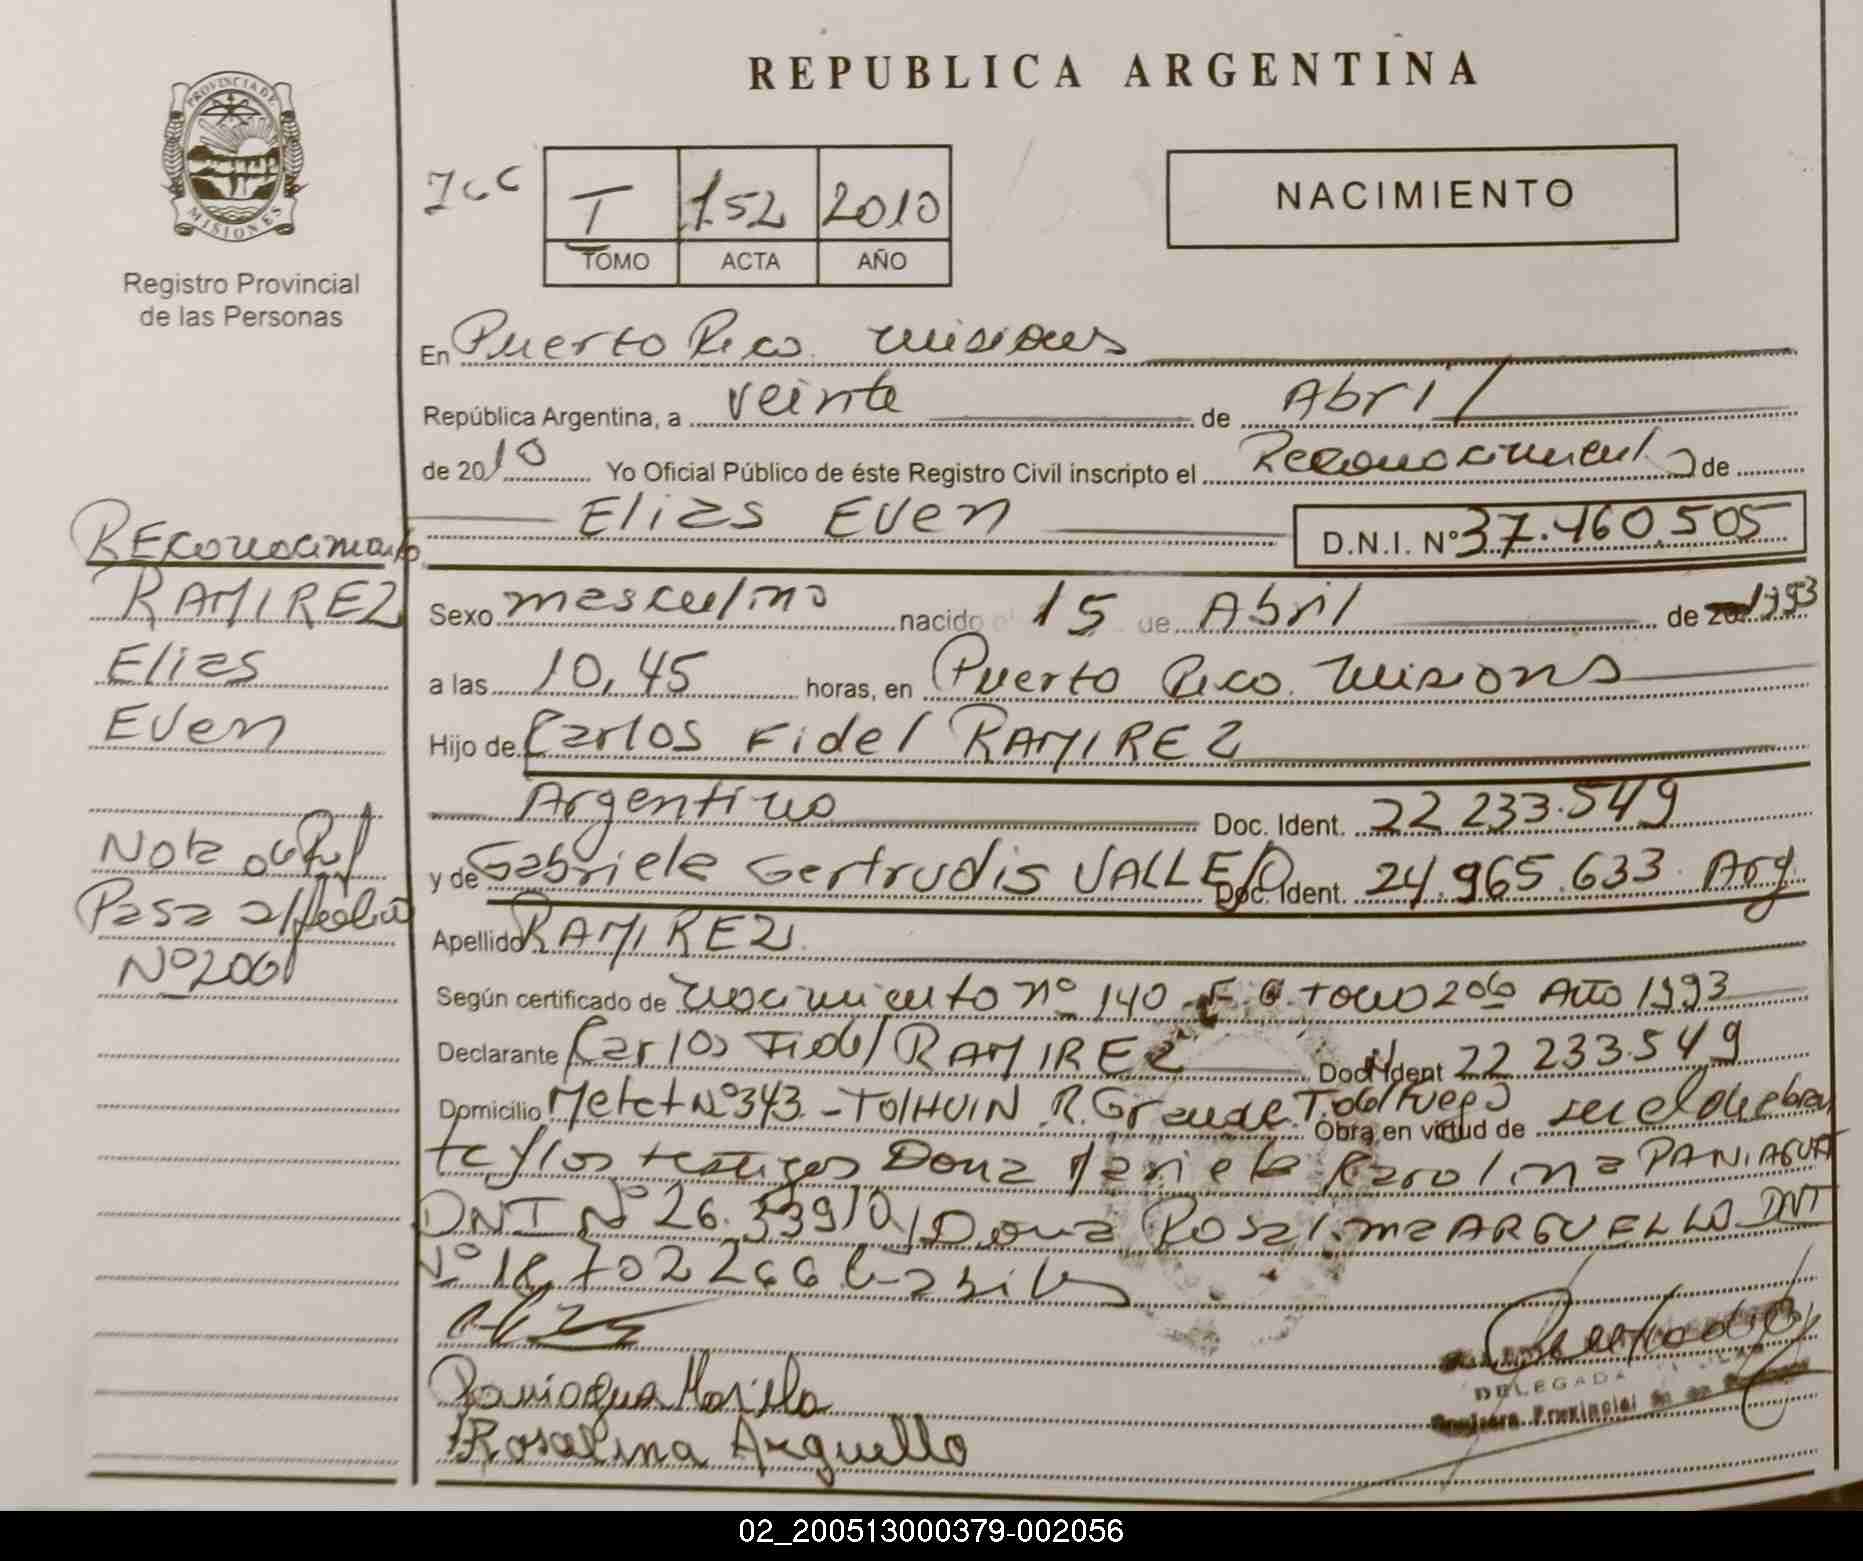 REPUBLICA ARGENTINA
PROVINCIA DE
MISIONES
Registro Provincial
de las Personas
T 152 2010
TOMO ACTA AÑO
NACIMIENTO
En Puerto Rico. Misiones
República Argentina, a veinte de Abril
de 2010 Yo Oficial Público de éste Registro Civil inscripto el Reconocimiento de
Elias Even D.N.I. Nº 37.460.505
Reconocimiento
RAMIREZ
Elias
Even
Nota de Ref
Pasa al folio
Nº 200
Sexo masculino nacido 15 de Abril de 1993
a las 10,45 horas, en Puerto Rico. Misiones
Hijo de Carlos Fidel RAMIREZ
Argentino Doc. Ident. 22 233.549
y de Gabriela Gertrudis VALLEJO Doc. Ident. 24.965.633. Arg.
Apellido RAMIREZ
Según certificado de nacimiento nº 140 Tomo 2º Año 1993
Declarante Carlos Fidel RAMIREZ Doc. Ident 22 233.549
Domicilio Metet Nº 343 - TOLHUIN R. Grande T. del Fuego Obra en virtud de ser el declaran
te y los testigos Dona Mariela Karolina PANIAGUA
DNI Nº 26.339 Dona Rosalina ARGUELLO DNI
Nº 18.702 266
Paniagua Mariela
Rosalina Arguello
DELEGADA
Registro Provincial de las Personas
02_200513000379-002056